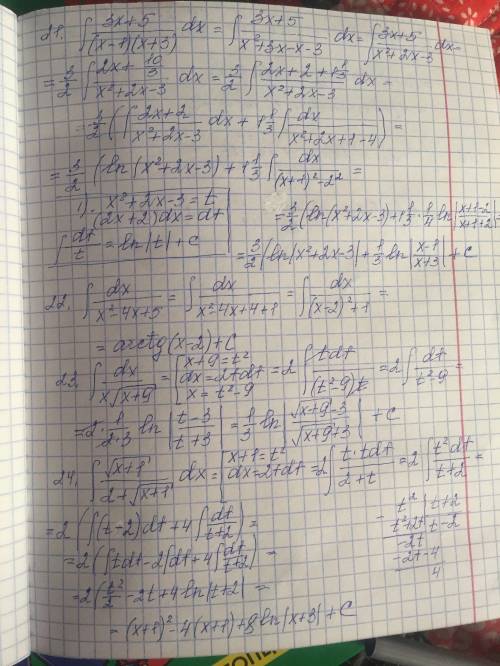 21. ∫ 3x+5/(x-1)(x+3) dx = ∫ 3x+5/x²+3x-x-3 dx = ∫ 3x+5/x²+2x-3 dx =
= 3/2 ∫ 2x+10/3 / x²+2x-3 dx = 3/2 ∫ 2x+2+1 1/3 / x²+2x-3 dx =
= 3/2 (∫ 2x+2/x²+2x-3 dx + 1 1/3 ∫ dx/x²+2x+1-4) =
= 3/2 (ln(x²+2x-3) + 1 1/3 ∫ dx/(x+1)²-2² =
1). x²+2x-3=t
(2x+2)dx=dt
= 3/2 (ln(x²+2x-3)+1 1/3 · 1/4 ln|x+1-2/x+1+2| =
∫ dt/t = ln|t|+c
= 3/2 (ln|x²+2x-3|+1/3 ln|x-1/x+3| + C
22. ∫ dx/x²-4x+5 = ∫ dx/x²-4x+4+1 = ∫ dx/(x-2)²+1 =
= arctg(x-2)+C
23. ∫ dx/x√x+9 = [x+9=t² dx=2tdt x=t²-9 = 2 ∫ tdt/(t²-9)t = 2 ∫ dt/t²-9 =
= 2· 1/2·3 ln|t-3/t+3| = 1/3 ln|√x+9-3/√x+9+3| + C
24. ∫ √x+1/2+√x+1 dx = [x+1=t² dx=2tdt = 2 ∫ t·tdt/2+t = 2 ∫ t²dt/t+2 =
= 2 (∫(t-2)dt+4∫ dt/t+2) =
- t² | t+2
t²+2t | t-2
-2t
-2t-4
4
= 2 (∫tdt-2∫dt+4∫ dt/t+2) =
= 2 (t²/2 -2t+4ln|t+2| =
= (x+1)²-4(x+1)+8ln|x+3|+C